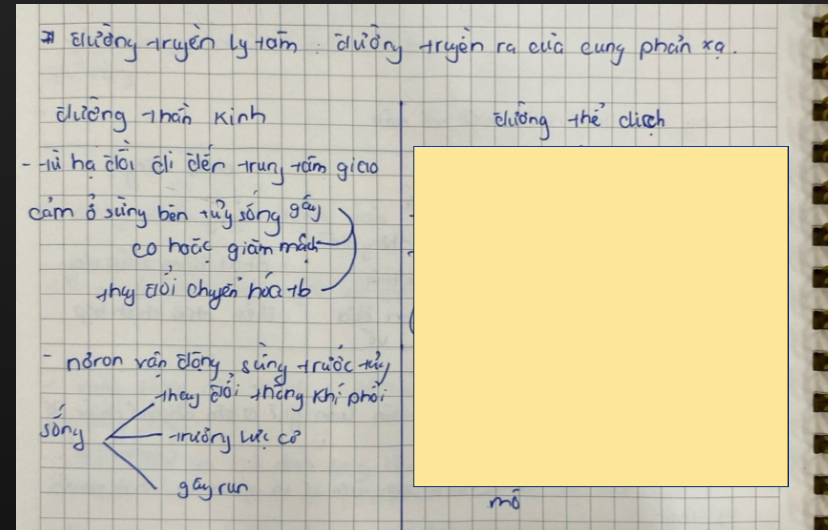 * đường truyền ly tâm : đường truyền ra của cung phản xạ.
đường thần kinh
- từ hạ đồi đi đến trung tâm giao
cảm ở sừng bên tủy sống gây
co hoặc giãn mạch
thay đổi chuyển hóa tb
- nơron vận động sừng trước tủy
sống
thay đổi thông khí phổi
trương lực cơ
gây run
đường thể dịch
mô